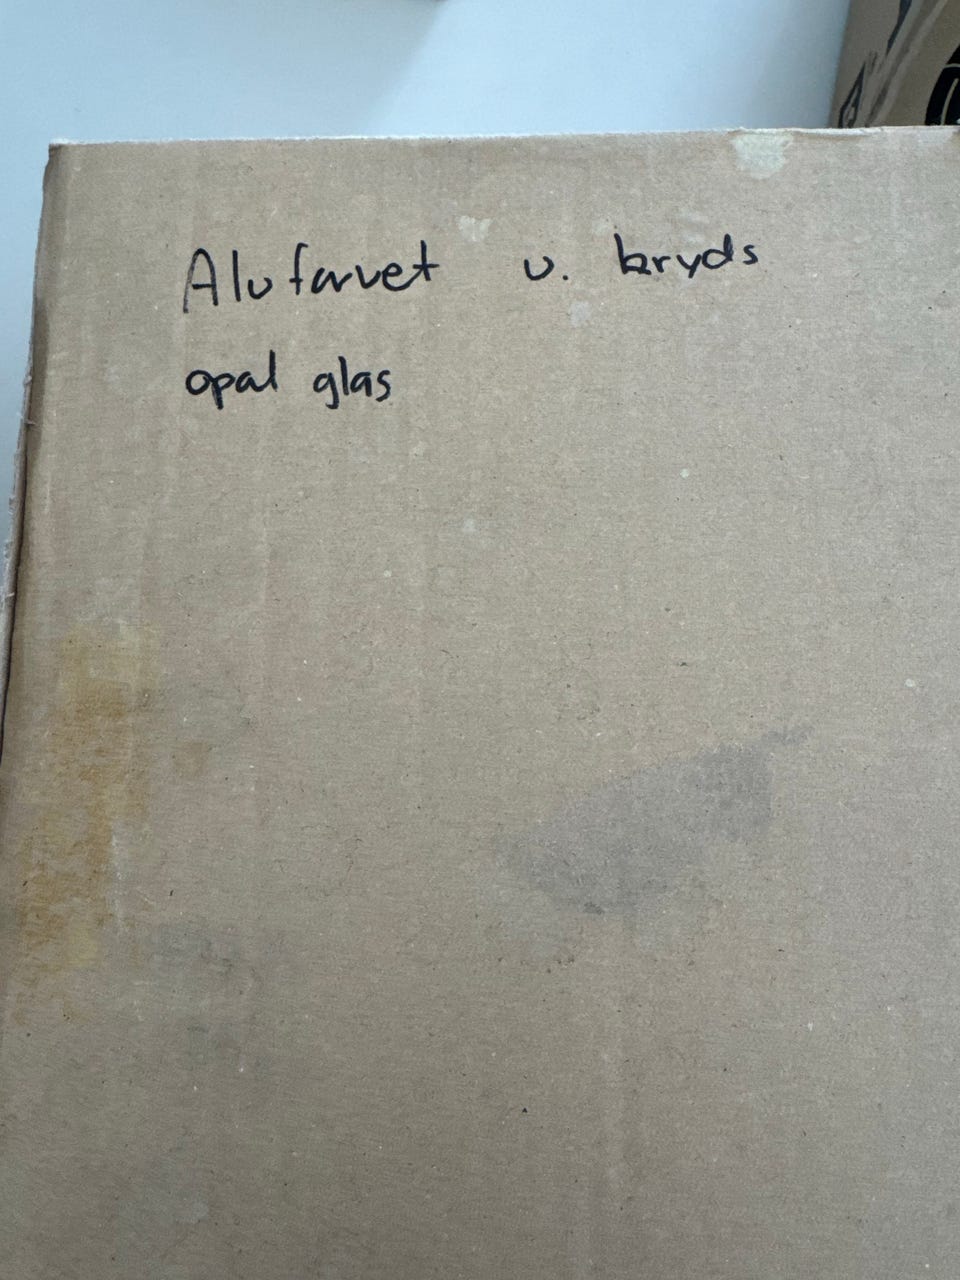 Alufarvet u. kryds
opal glas